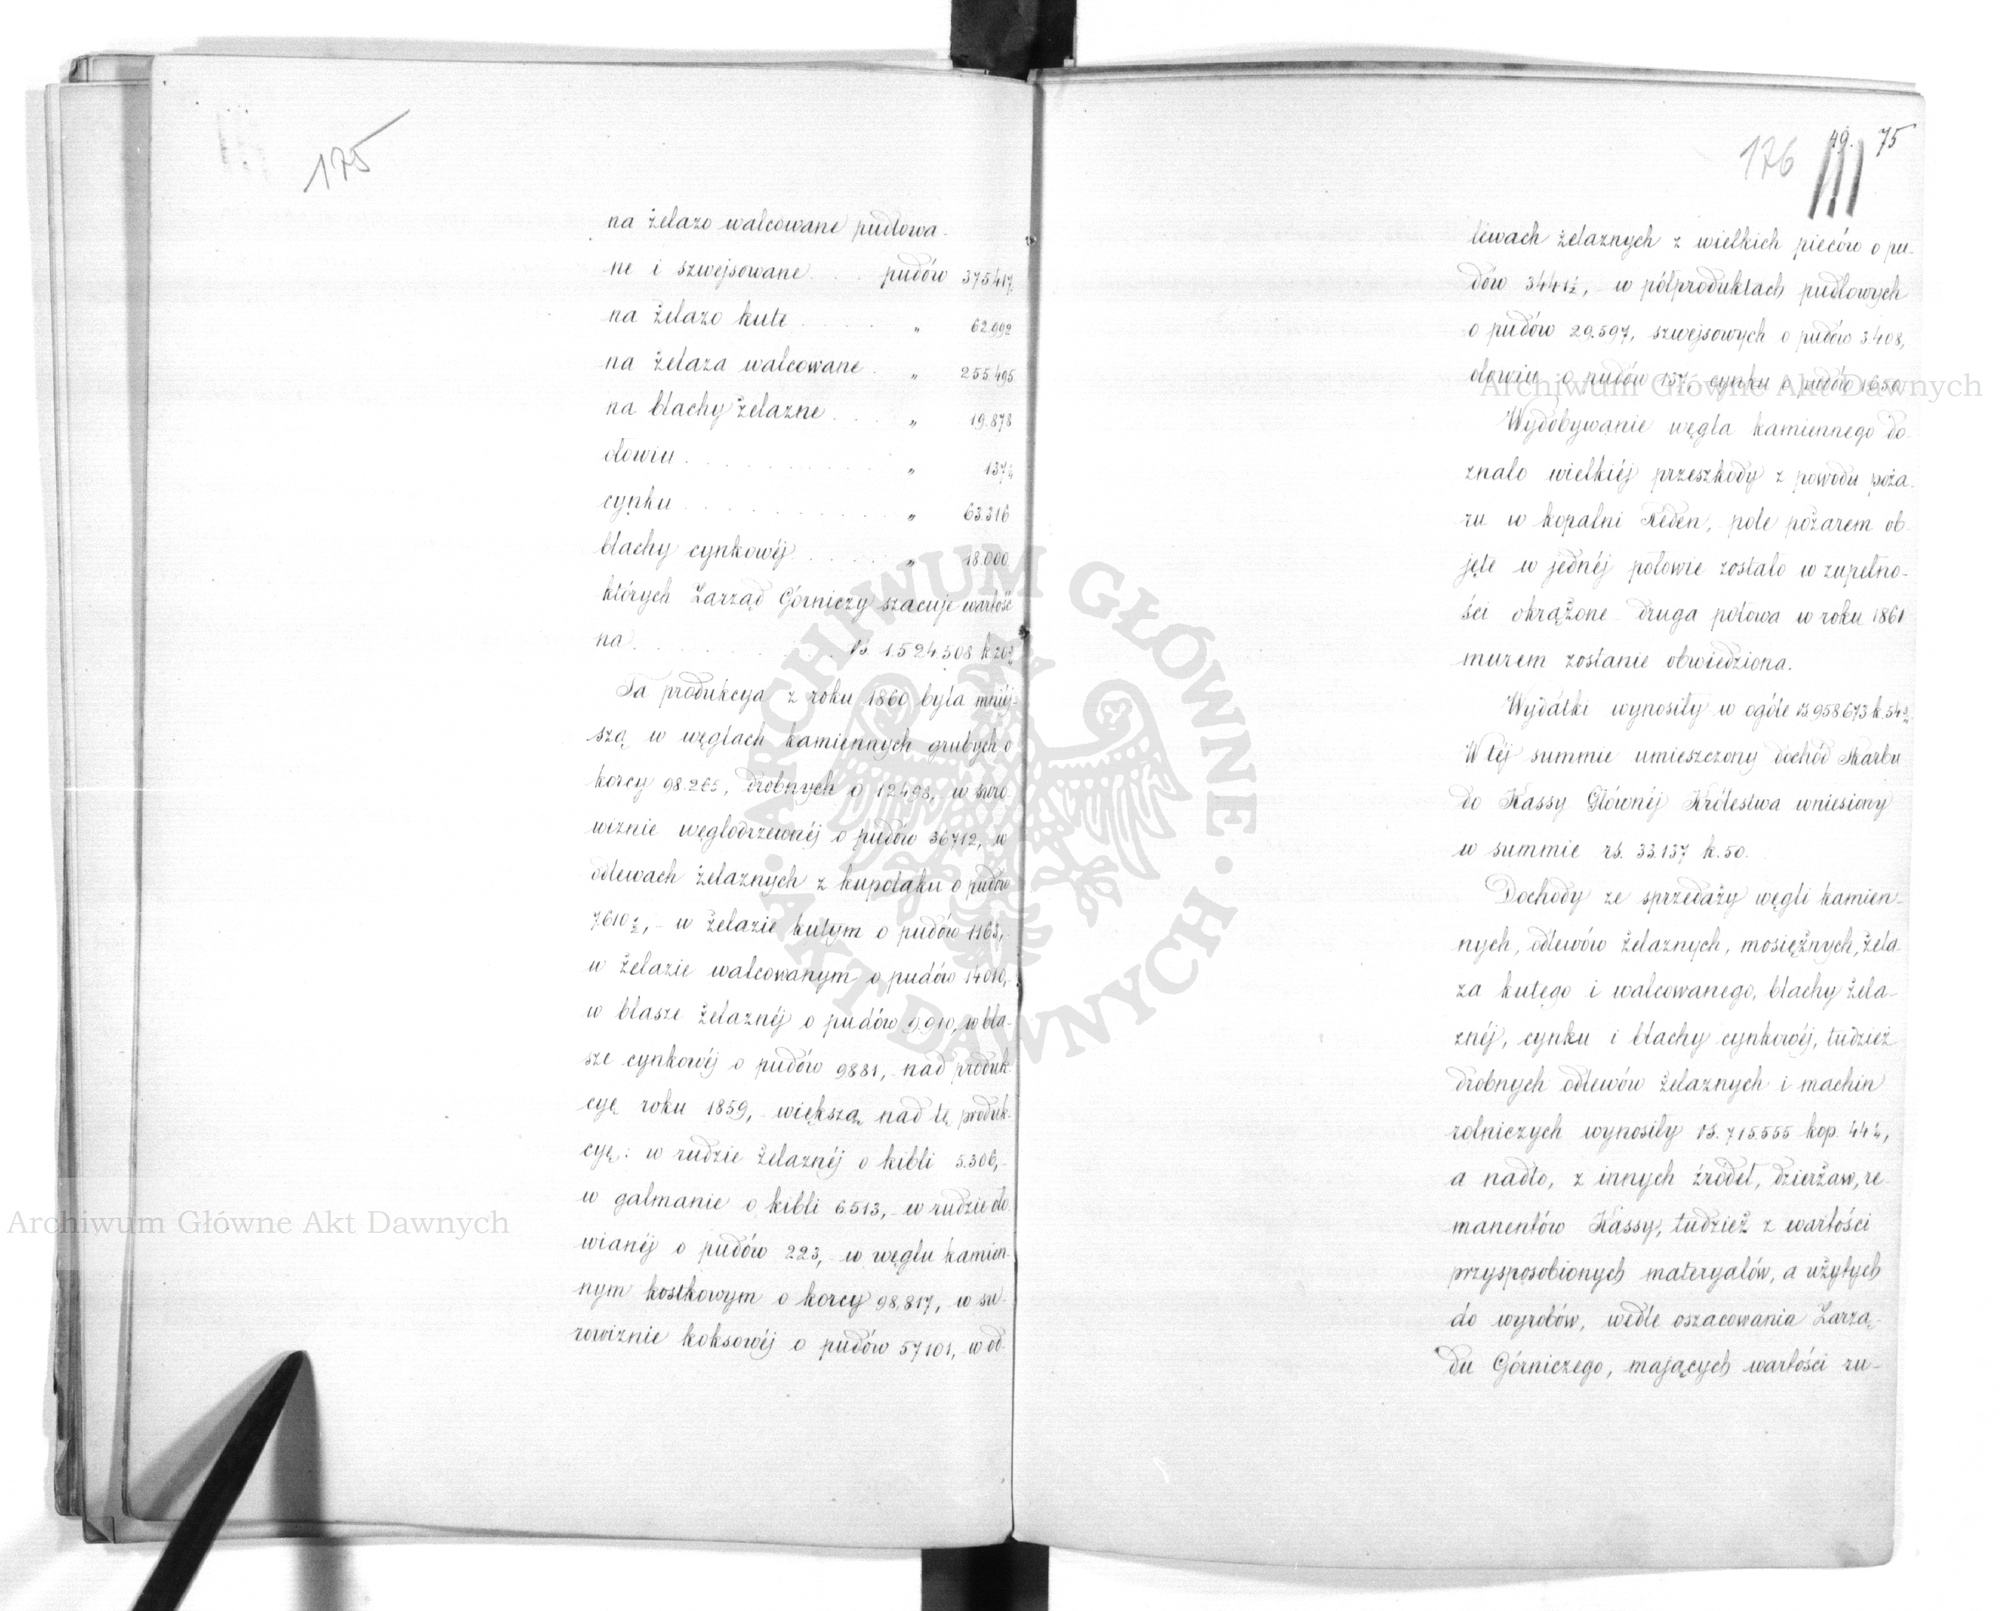 175
na żelazo walcowane pudlowa-
ne i szwejsowane . . . pudów 375417
na żelazo kute . . . . . „ 62.992
na żelaza walcowane . „ 255.495
na blachy żelazne . . . „ 19.878
ołowiu . . . . . . . . . . . „ 137½
cynku . . . . . . . . . . . „ 63.316
blachy cynkowéj . . . . „ 18.000
których Zarząd Górniczy szacuje wartość
na . . . . . . . . . . rs. 1.524.508 k
Ta produkcya z roku 1860 była mniéj-
szą w węglach kamiennych grubych o
korcy 98.265, drobnych o 12498, w suro-
wiznie węglodrzewnéj o pudów 36712, w
odlewach żelaznych z kupolaku o pudów
7.610½, - w żelazie kutym o pudów 1163, -
w żelazie walcowanym o pudów 14010, -
w blasze żelaznéj o pudów 9.910, w bla-
sze cynkowéj o pudów 9881, - nad produk-
cyę roku 1859, - większą nad tę produk-
cyę: w rudzie żelaznéj o kibli 5.306, -
w galmanie o kibli 6513, - w rudzie oło-
wianéj o pudów 223, - w węglu kamien-
nym kostkowym o korcy 98,817, w su-
rowiznie koksowéj o pudów 57101, w od-
176 49. 75
lewach żelaznych z wielkich pieców o pu-
dów 3441½, - w półproduktach pudlowych
o pudów 29.597, szwejsowych o pudów 3408,
ołowiu o pudów 137½, cynku o pudów 1650
Wydobywanie węgla kamiennego do-
znało wielkiéj przeszkody z powodu poża-
ru w kopalni Reden, pole pożarem ob-
jęte w jednéj połowie zostało w zupełno-
ści okrążone druga połowa w roku 1861
murem zostanie obwiedziona.
Wydatki wynosiły w ogóle rs 958673 k. 54½
W téj summie umieszczony dochód Skarbu
do Kassy Głównéj Królestwa wniesiony
w summie rs. 33.137 k. 50.
Dochody ze sprzedaży węgli kamien-
nych, odlewów żelaznych, mosiężnych, żela-
za kutego i walcowanego, blachy żela-
znéj, cynku i blachy cynkowéj, tudzież
drobnych odlewów żelaznych i machin
rolniczych wynosiły rs. 715.555 kop. 44½,
a nadto, z innych źródeł, dzierżaw, re-
manentów Kassy, tudzież z wartości
przysposobionych materyałów, a użytych
do wyrobów, wedle oszacowania Zarzą-
du Górniczego, mających wartości ru-
Archiwum Główne Akt Dawnych
Archiwum Główne Akt Dawnych
ARCHIWUM GŁÓWNE · AKT DAWNYCH ·